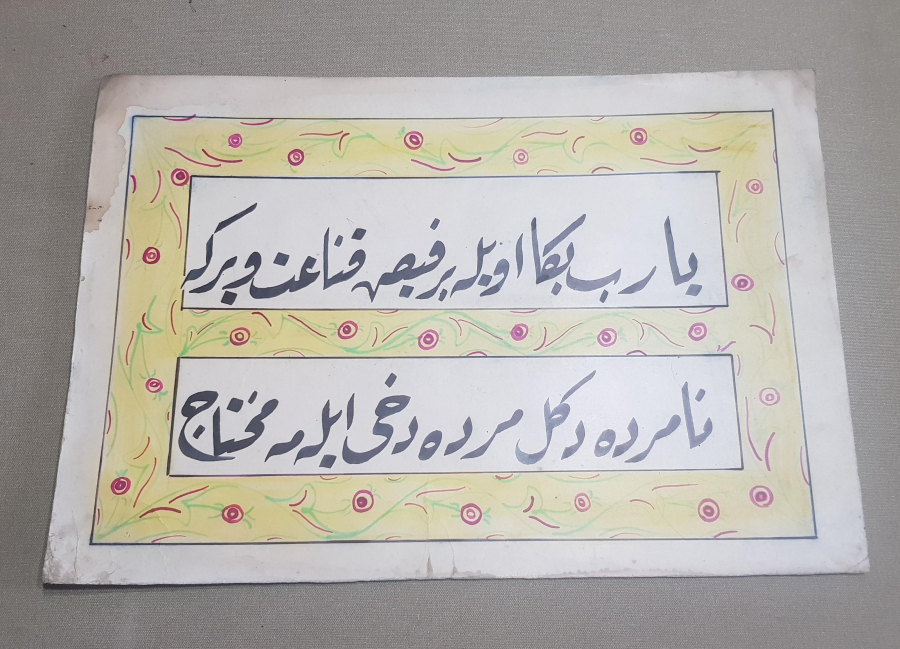 يا رب بكا اويله بر فيض قناعت وير كه
نامرده دكل مرده دخی ايله مه محتاج